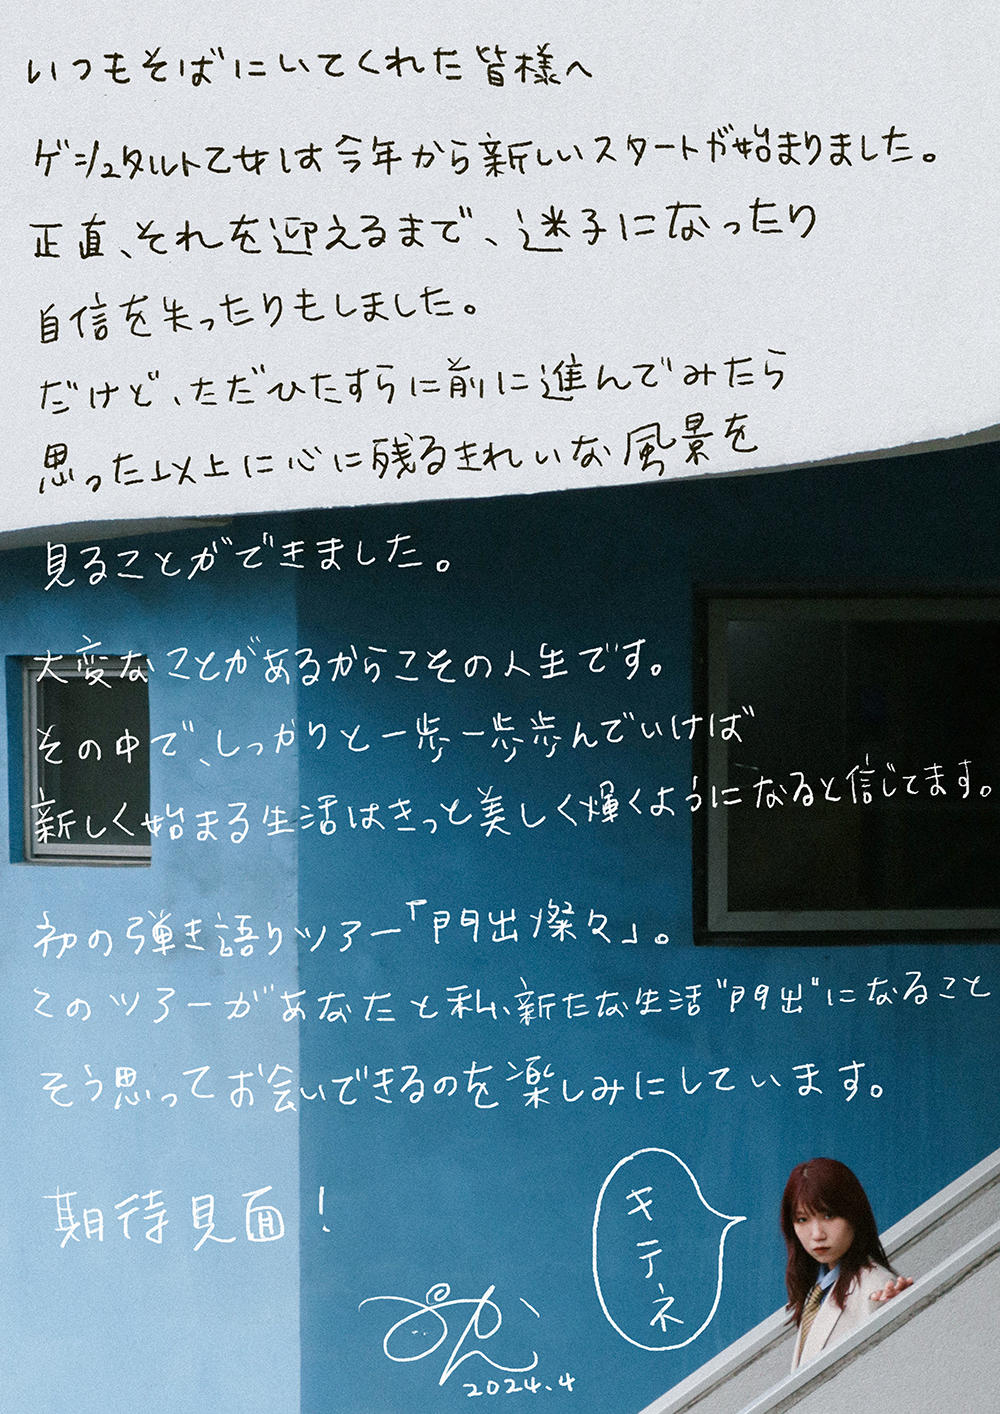 いつもそばにいてくれた皆様へ
ゲシュタルト乙女は今年から新しいスタートが始まりました。
正直、それを迎えるまで、迷子になったり
自信を失ったりもしました。
だけど、ただひたすらに前に進んでみたら
思った以上に心に残るきれいな風景を
見ることができました。
大変なことがあるからこその人生です。
その中で、しっかりと一歩一歩歩んでいけば
新しく始まる生活はきっと美しく輝くようになると信じてます。
初の弾き語りツアー「門出燦々」。
このツアーがあなたと私、新たな生活"門出"になること
そう思ってお会いできるのを楽しみにしています。
期待見面！
キテネ
2024.4